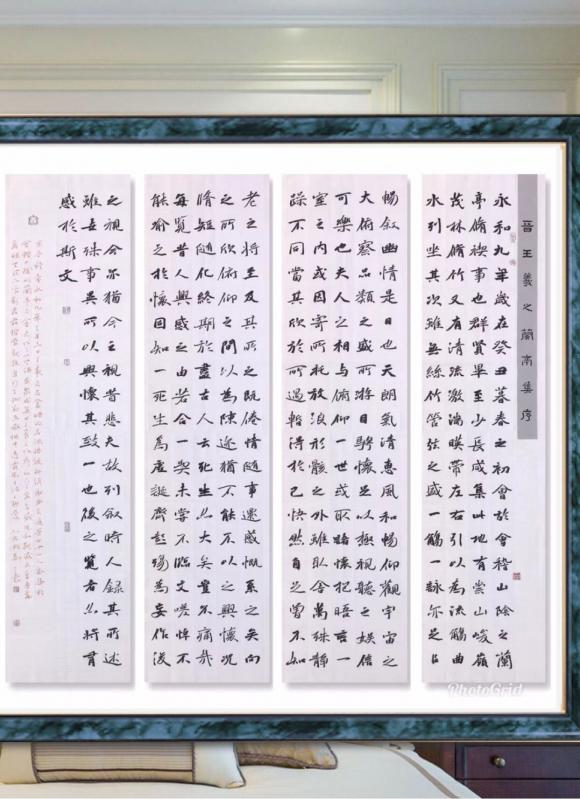 晉王羲之蘭亭集序
永和九年歲在癸丑暮春之初會於會稽山陰之蘭
亭脩禊事也群賢畢至少長咸集此地有崇山峻嶺
茂林脩竹又有清流激湍暎帶左右引以為流觴曲
水列坐其次雖無絲竹管弦之盛一觴一詠亦足以
暢叙幽情是日也天朗氣清惠風和暢仰觀宇宙之
大俯察品類之盛所游目騁懷足以極視聽之娛信
可樂也夫人之相與俯仰一世或取諸懷抱晤言一
室之內或因寄所託放浪形骸之外雖取舍萬殊靜
躁不同當其欣於所遇暫得於己快然自足曾不知
老之將至及其所之既倦情隨事遷感慨系之矣向
之所欣俯仰之間以為陳迹猶不能不以之興懷況
脩短隨化終期於盡古人云死生亦大矣豈不痛哉
每覽昔人興感之由若合一契未嘗不臨文嗟悼不
能喻之於懷固知一死生為虛誕齊彭殤為妄作後
之視今亦猶今之視昔悲夫故列叙時人錄其所述
雖世殊事異所以興懷其致一也後之覽者亦將有
感於斯文
PhotoGrid